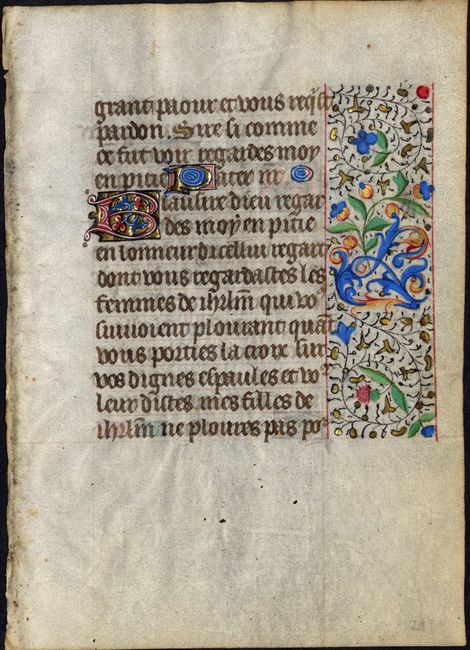 grant paour et vous reqͥst
pardon. Sire si comme
ce fut voir regardes moy
en pitie Pater nr̄
Biau sire dieu regar
des moy en pitie
en lonneur dicellui regart
dont vous regardastes les
femmes de ihrlm̄ qui vo᷒
suiuoient plourant quāt
vous porties la croix sur
vos dignes espaules et vo᷒
leur dictes mes filles de
ihrlm̄ ne ploures pas po᷒